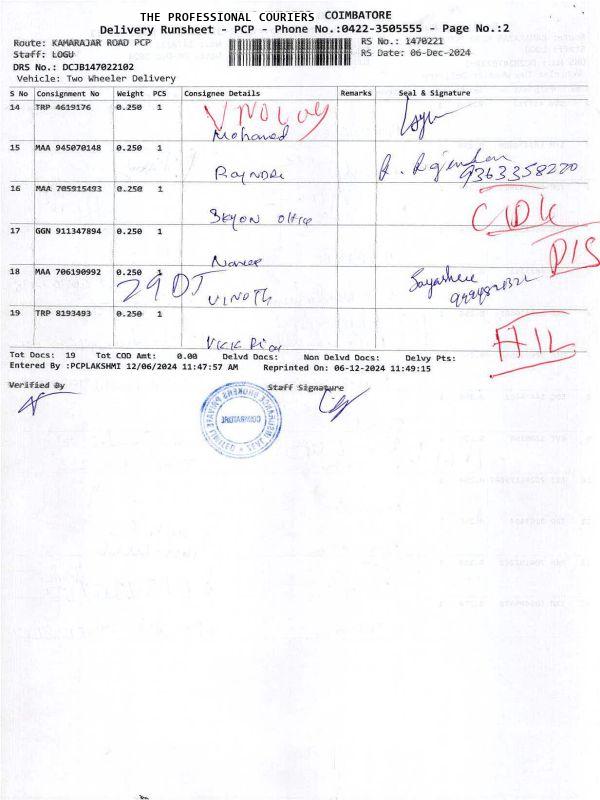 THE PROFESSIONAL COURIERS COIMBATORE
Delivery Runsheet - PCP - Phone No.:0422-3505555 - Page No.:2
Route: KAMARAJAR ROAD PCP RS No.: 1470221
Staff: LOGU RS Date: 06-Dec-2024
DRS No.: DCJB147022102
Vehicle: Two Wheeler Delivery
S No Consignment No Weight PCS Consignee Details Remarks Seal & Signature
14 TRP 4619176 0.250 1
Mohamed
15 MAA 945070148 0.250 1
9363358220
16 MAA 705915493 0.250 1
17 GGN 911347894 0.250 1
18 MAA 706190992 0.250 1
29 DJ VINOTH
19 TRP 8193493 0.250 1
Tot Docs: 19 Tot COD Amt: 0.00 Delvd Docs: Non Delvd Docs: Delvy Pts:
Entered By :PCPLAKSHMI 12/06/2024 11:47:57 AM Reprinted On: 06-12-2024 11:49:15
Verified By Staff Signature
COIMBATORE